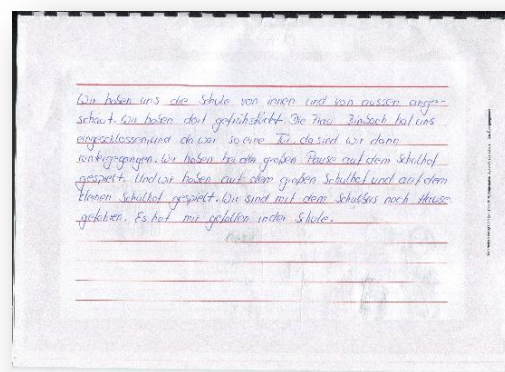 Wir haben uns die Schule von innen und von aussen ange-
schaut. Wir haben dort gefrühstückt. Die Frau hat uns
eingeschlossen, und da war so eine Tür, da sind wir dann
runtergegangen. Wir haben bei der großen Pause auf dem Schulhof
gespielt. Und wir haben auf dem großen Schulhof und auf dem
kleinen Schulhof gespielt. Wir sind mit dem Schulbus nach Hause
gefahren. Es hat mir gefallen in der Schule.